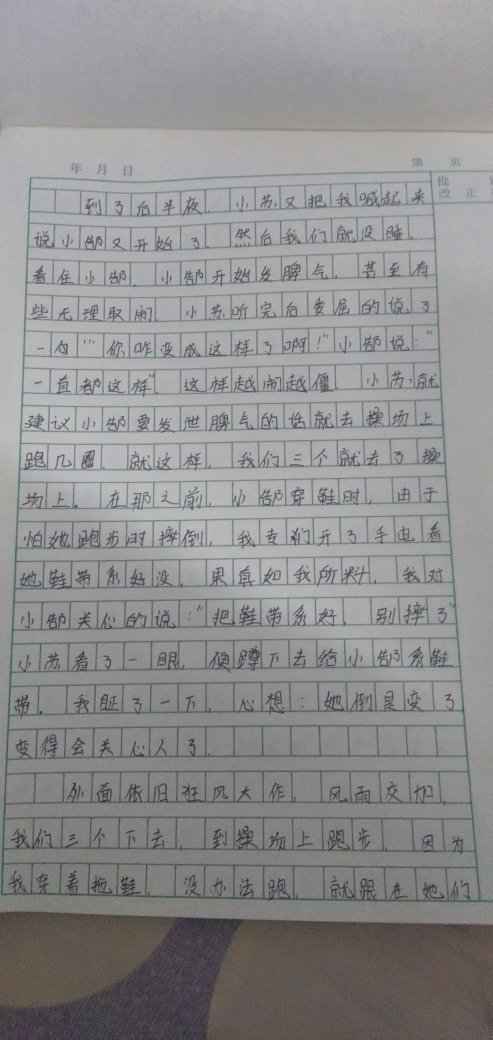 年 月 日
第 页
批
改 正
到了后半夜，小苏又把我喊起来
说小郜又开始了。然后我们就没睡，
看住小郜。小郜开始发脾气，甚至有
些无理取闹。小苏听完后委屈的说了
一句："你咋变成这样了啊！"小郜说："
一直都这样"。这样越闹越僵。小苏就
建议小郜要发泄脾气的话就去操场上
跑几圈。就这样，我们三个就去了操
场上。在那之前，小郜穿鞋时，由于
怕她跑步时摔倒，我专门开了手电看
她鞋带系好没。果真如我所料，我对
小郜关心的说："把鞋带系好，别摔了"
小苏看了一眼，便蹲下去给小郜系鞋
带。我怔了一下，心想：她倒是变了
变得会关心人了。
外面依旧狂风大作，风雨交加，
我们三个下去，到操场上跑步。因为
我穿着拖鞋，没办法跑，就跟在她们